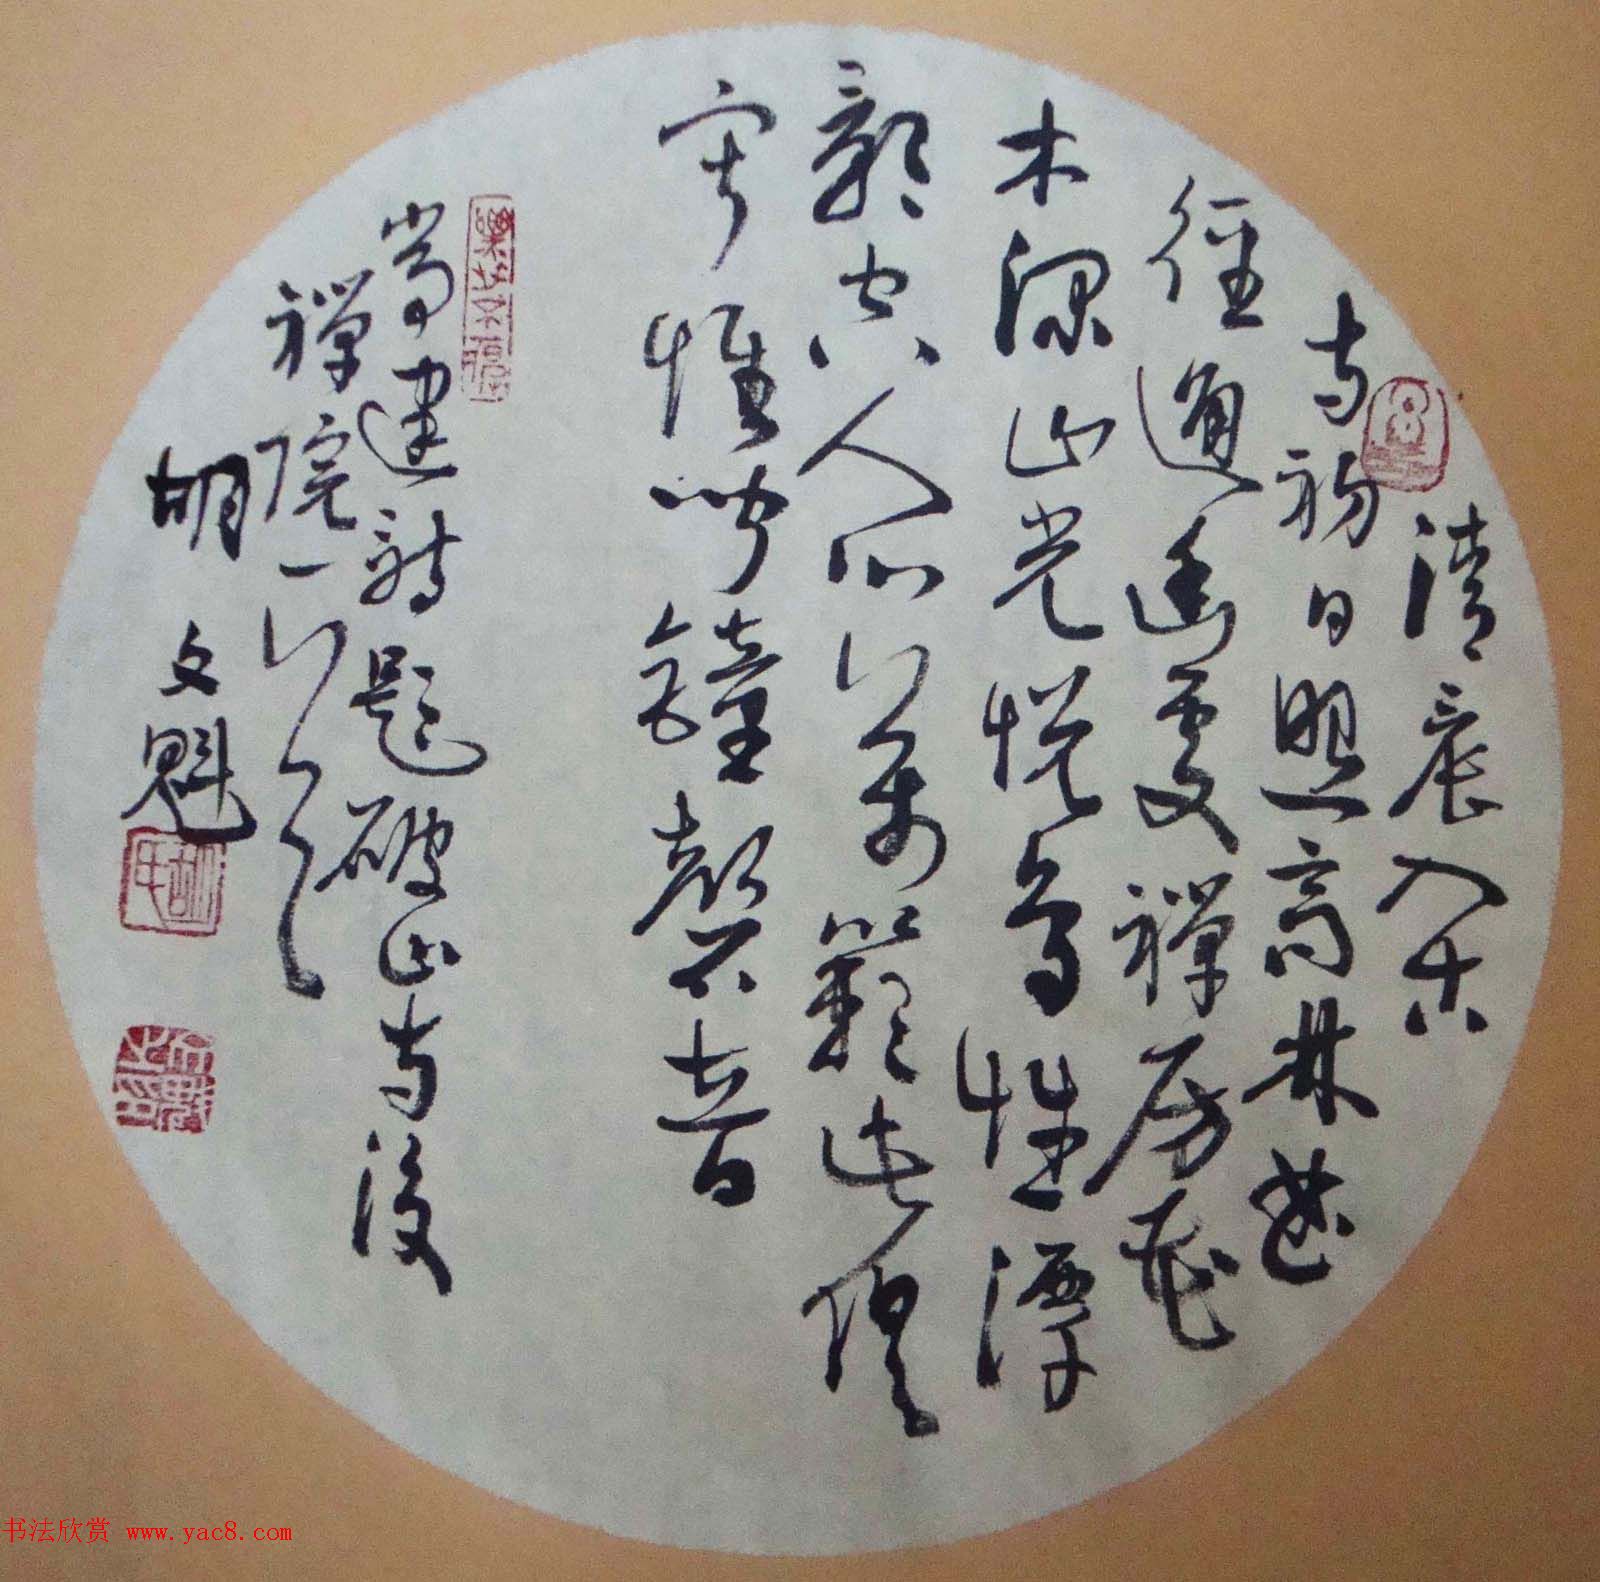 清晨入古
寺初日照高林曲
徑通幽處禪房花
木深山光悅鳥性潭
影空人心萬籟此俱
寂惟聞鐘磬音
常建詩題破山寺後
禪院一首
胡文魁
书法欣赏 www.yac8.com